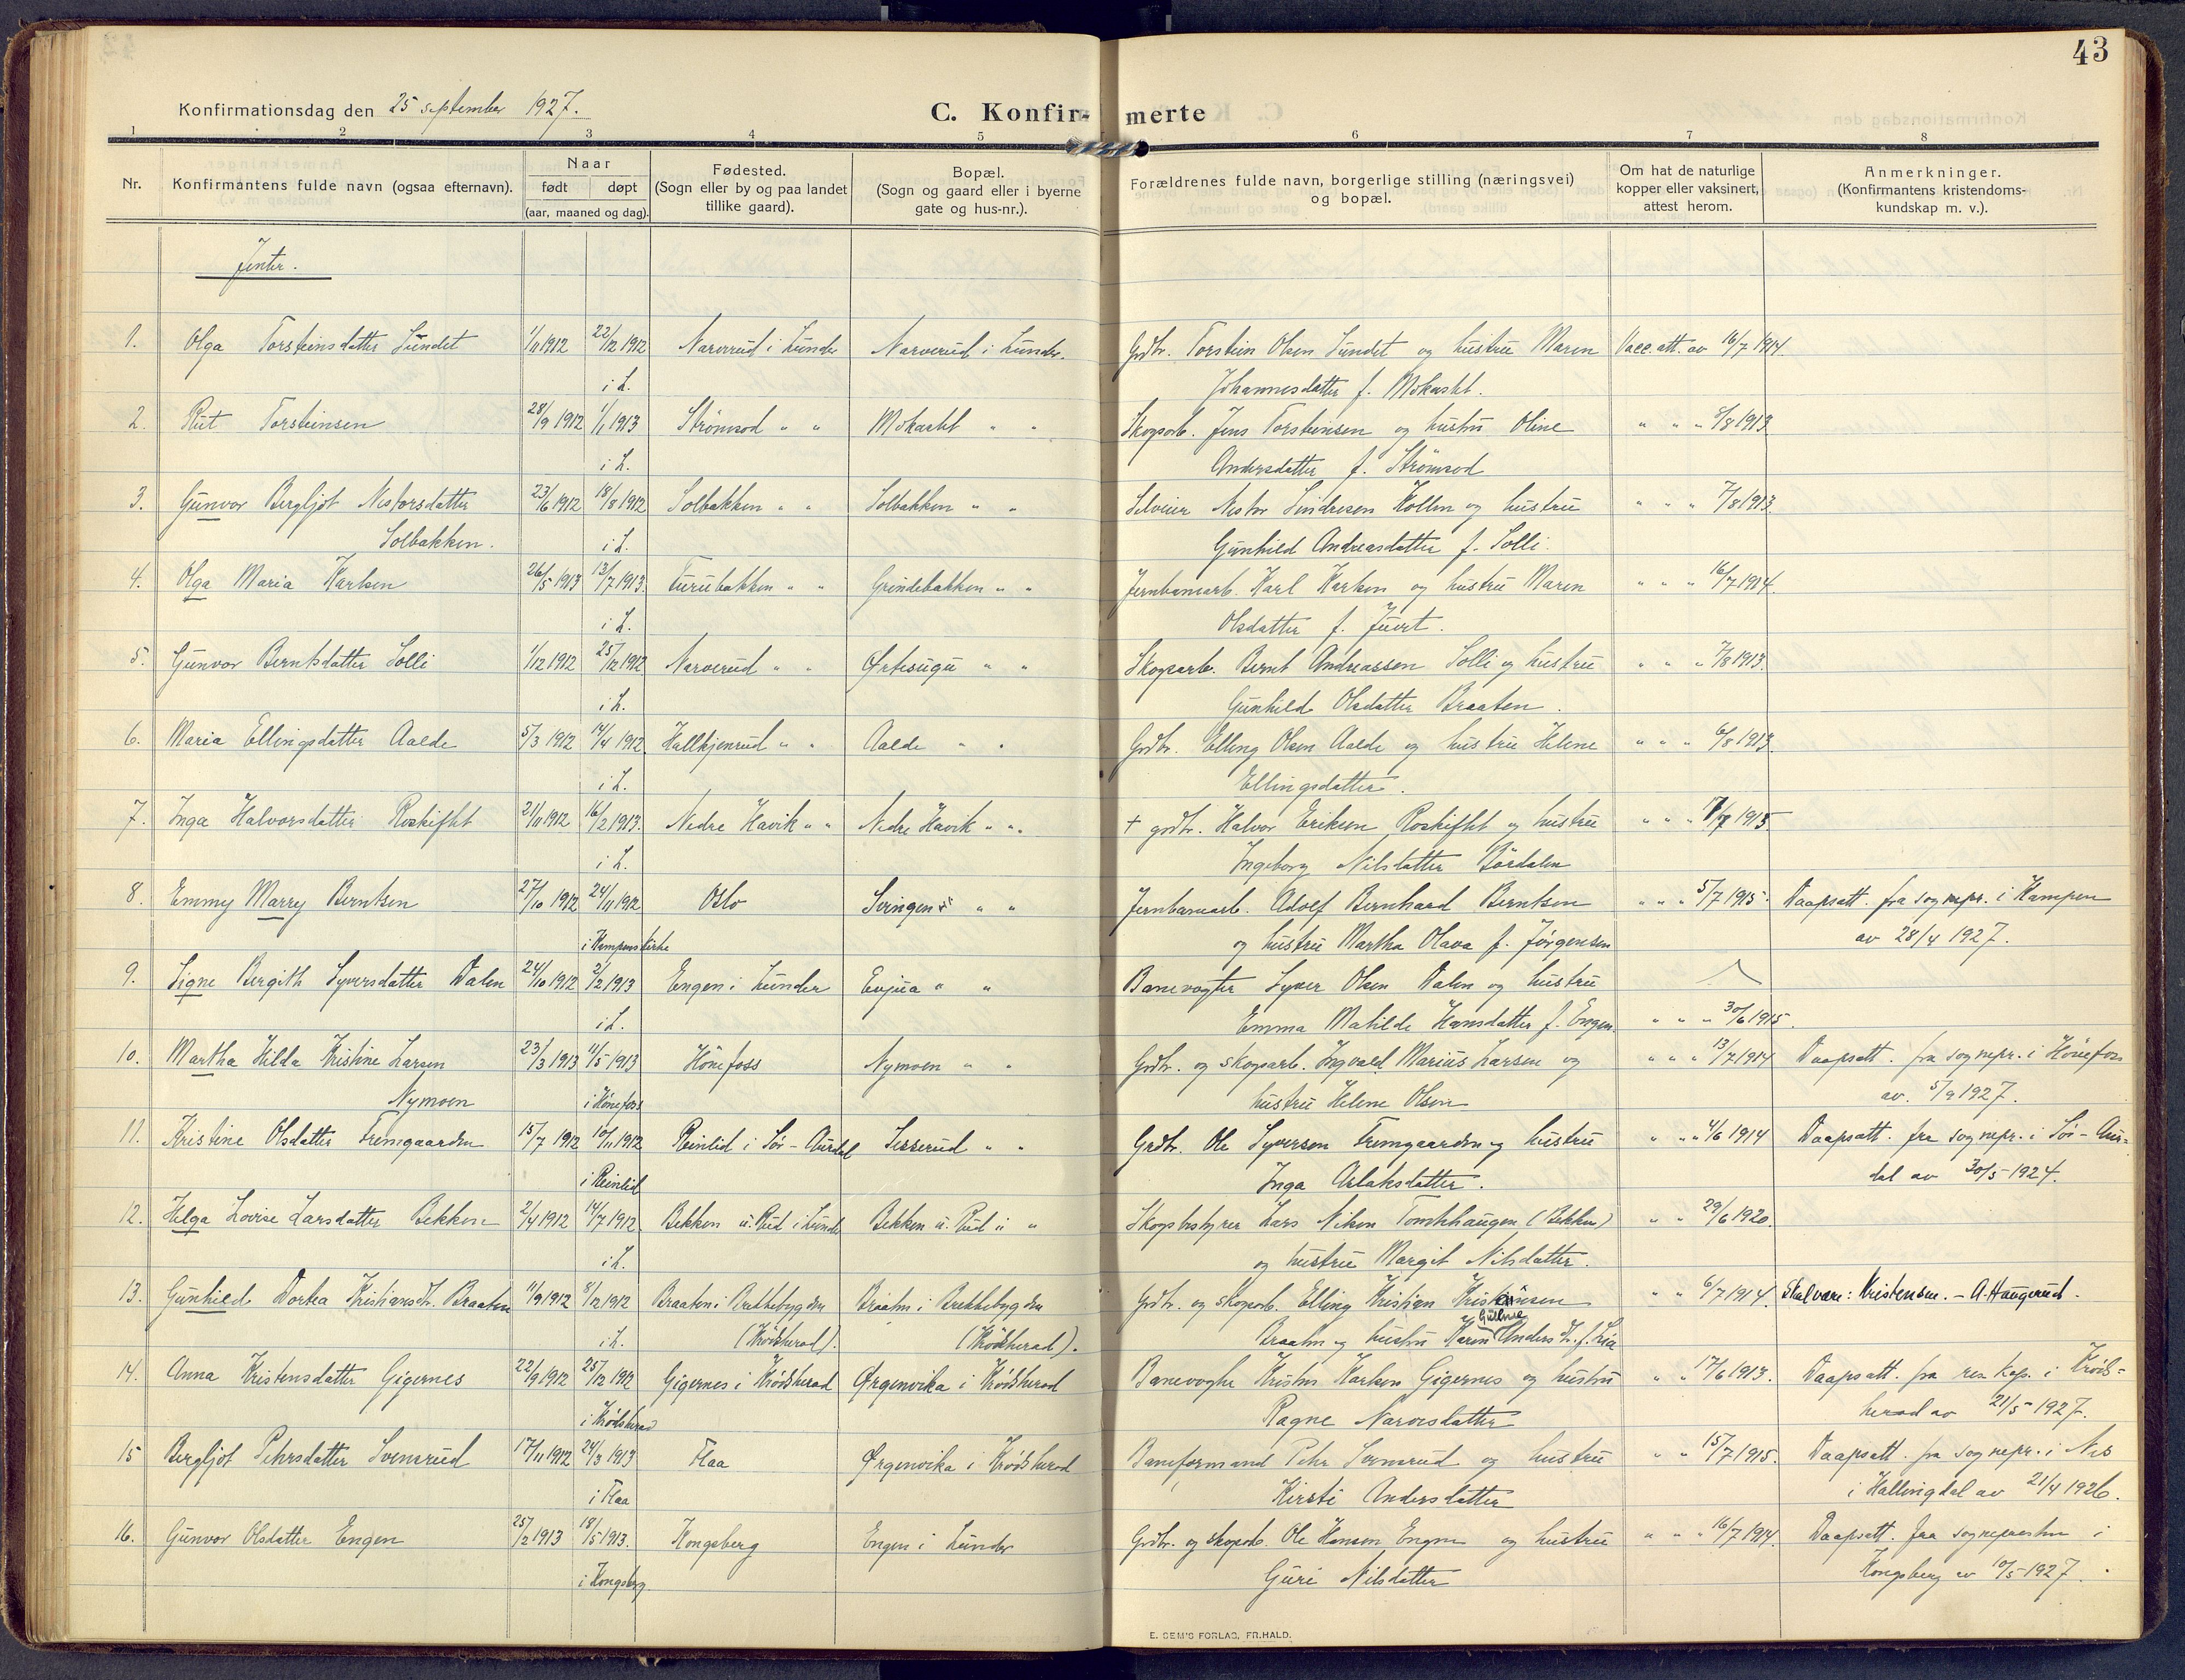 43
Konfirmationsdag den 25 september 1927.
C. Konfirmerte
1 2 3 4 5 6 7 8
Nr. Konfirmantens fulde navn (ogsaa efternavn). Naar født døpt (aar, maaned og dag). Fødested. (Sogn eller by og paa landet tillike gaard). Bopæl. (Sogn og gaard eller i byerne gate og hus-nr.). Forældrenes fulde navn, borgerlige stilling (næringsvei) og bopæl. Om hat de naturlige kopper eller vaksinert, attest herom. Anmerkninger. (Konfirmantens kristendoms- kundskap m. v.).
Jenter.
1. Olga Torsteinsdatter Sundet 1/11 1912 22/12 1912 Narverud i Lunder Narverud i Lunder. Grdbr. Torstein Olsen Sundet og hustru Maren Vacc. att. av 16/7 1914.
i L. Johannesdatter f. Mokastet.
2. Rut Torsteinsen 28/9 1912 1/1 1913 Strømsod " " Mokastet " " Skogsarb. Jens Torsteinsen og hustru Oline " " " 5/8 1913.
i L. Andersdatter f. Strømsod
3. Gunvor Bergljot Nestorsdatter 23/6 1912 18/8 1912 Solbakken " " Solbakken " " Selveier Nestor Sindresen Kollen og hustru " " " 7/8 1913.
Solbakken. i L. Gunhild Andreasdatter f. Solli.
4. Olga Maria Karlsen 26/5 1913 13/7 1913. Turubakken " " Grindebakken " " Jernbanearb. Karl Karlsen og hustru Maren " " " 16/7 1914.
i L. Olsdatter f. Juvet.
5. Gunvor Berntsdatter Solli 1/12 1912 25/12 1912 Narverud " " Ørtesugu " " Skogsarb. Bernt Andreassen Solli og hustru " " " 7/8 1913.
i L. Gunhild Olsdatter Braaten.
6. Maria Ellingsdatter Aalde 5/3 1912 14/4 1912 Hallkjenrud " " Aalde " " Grdbr. Elling Olsen Aalde og hustru Helene " " " 6/8 1913.
i L. Ellingsdatter.
7. Inga Halvorsdatter Roskiftet 21/11 1912 16/2 1913. Nedre Havik " " Nedre Havik " " + grdbr. Halvor Eriksen Roskiftet og hustru " " " 1915.
i L. Ingeborg Nilsdatter Bördalen
8. Emmy Marry Berntsen 27/10 1912 24/11 1912 Oslo Svingen " " Jernbanearb. Adolf Bernhard Berntsen " " " 5/7 1915. Daapsatt. fra sognepr. i Kampen
i Kampens kirke og hustru Martha Olava f. Jørgensen av 28/4 1927.
9. Signe Bergith Syversdatter Dalen 24/10 1912 2/2 1913 Engen i Lunder Evjua " " Banevogter Syver Olsen Dalen og hustru
i L. Emma Matilde Hansdatter f. Engen. " " " 30/6 1915.
10. Martha Hilda Kristine Larsen 23/3 1913 11/5 1913 Hönefoss Nymoen " " Grdbr. og skogsarb. Ingvald Marius Larsen og " " " 13/7 1914 Daapsatt. fra sognepr. i Hönefoss
Nymoen i Hönefoss hustru Helene Olsen av. 5/9 1927.
11. Kristine Olsdatter Fremgaarden 15/7 1912 10/11 1912 Reinlid i Sør-Aurdal Sisserud " " Grdbr. Ole Syversen Fremgaarden og hustru " " " 4/6 1914 Daapsatt. fra sognepr. i Sör-Aur-
i Reinlid Inga Aslaksdatter. dal av 30/5-1924.
12. Helga Lovise Larsdatter Bekken 2/4 1912 14/7 1912 Bekken u. Rud i Lunder Bekken u. Rud i " Skogbestyrer Lars Nilsen Tomthaugen (Bekken) " " 29/6 1920.
i L. og hustru Margit Nilsdatter.
13. Gunhild Dortea Kristiansdtr. Braaten 11/9 1912 8/12 1912 Braaten i Bukkebygden Braaten i Bukkebygden Grdbr. og skogsarb. Elling Kristian Kristensen " " 6/7 1914. Skal være: Kristensen. - A. Haugerud.
i L. (Krödsherad). (Krödsherad). Braaten og hustru Karen Guline Andersdtr. f. Lia
14. Anna Kristensdatter Gigernes 22/9 1912 25/12 1912 Gigernes i Krödsherad Ørgenvika i Krödsherad Banevogter Kristen Karlsen Gigernes og hustru " " 17/6 1913. Daapsatt. fra res. kap. i Kröds-
i Krödsherad Ragne Narvesdatter herad av 21/5-1927.
15 Bergljot Petersdatter Svensrud 17/11 1912 24/3 1913 Flaa Ørgenvika i Krödsherad Baneformand Peter Svensrud og hustru " " 15/7 1915. Daapsatt. fra sognepr. i Nes
i Flaa Kirsti Andersdatter i Hallingdal av 21/4 1926.
16. Gunvor Olsdatter Engen 25/2 1913 18/5 1913. Kongsberg Engen i Lunder Grdbr. og skogsarb. Ole Hansen Engen og hustru " " " 16/7 1914. Daapsatt. fra sognepresten i
i Kongsberg Guri Nilsdatter Kongsberg av 10/5-1927.
E. SEM'S FORLAG, FR.HALD.